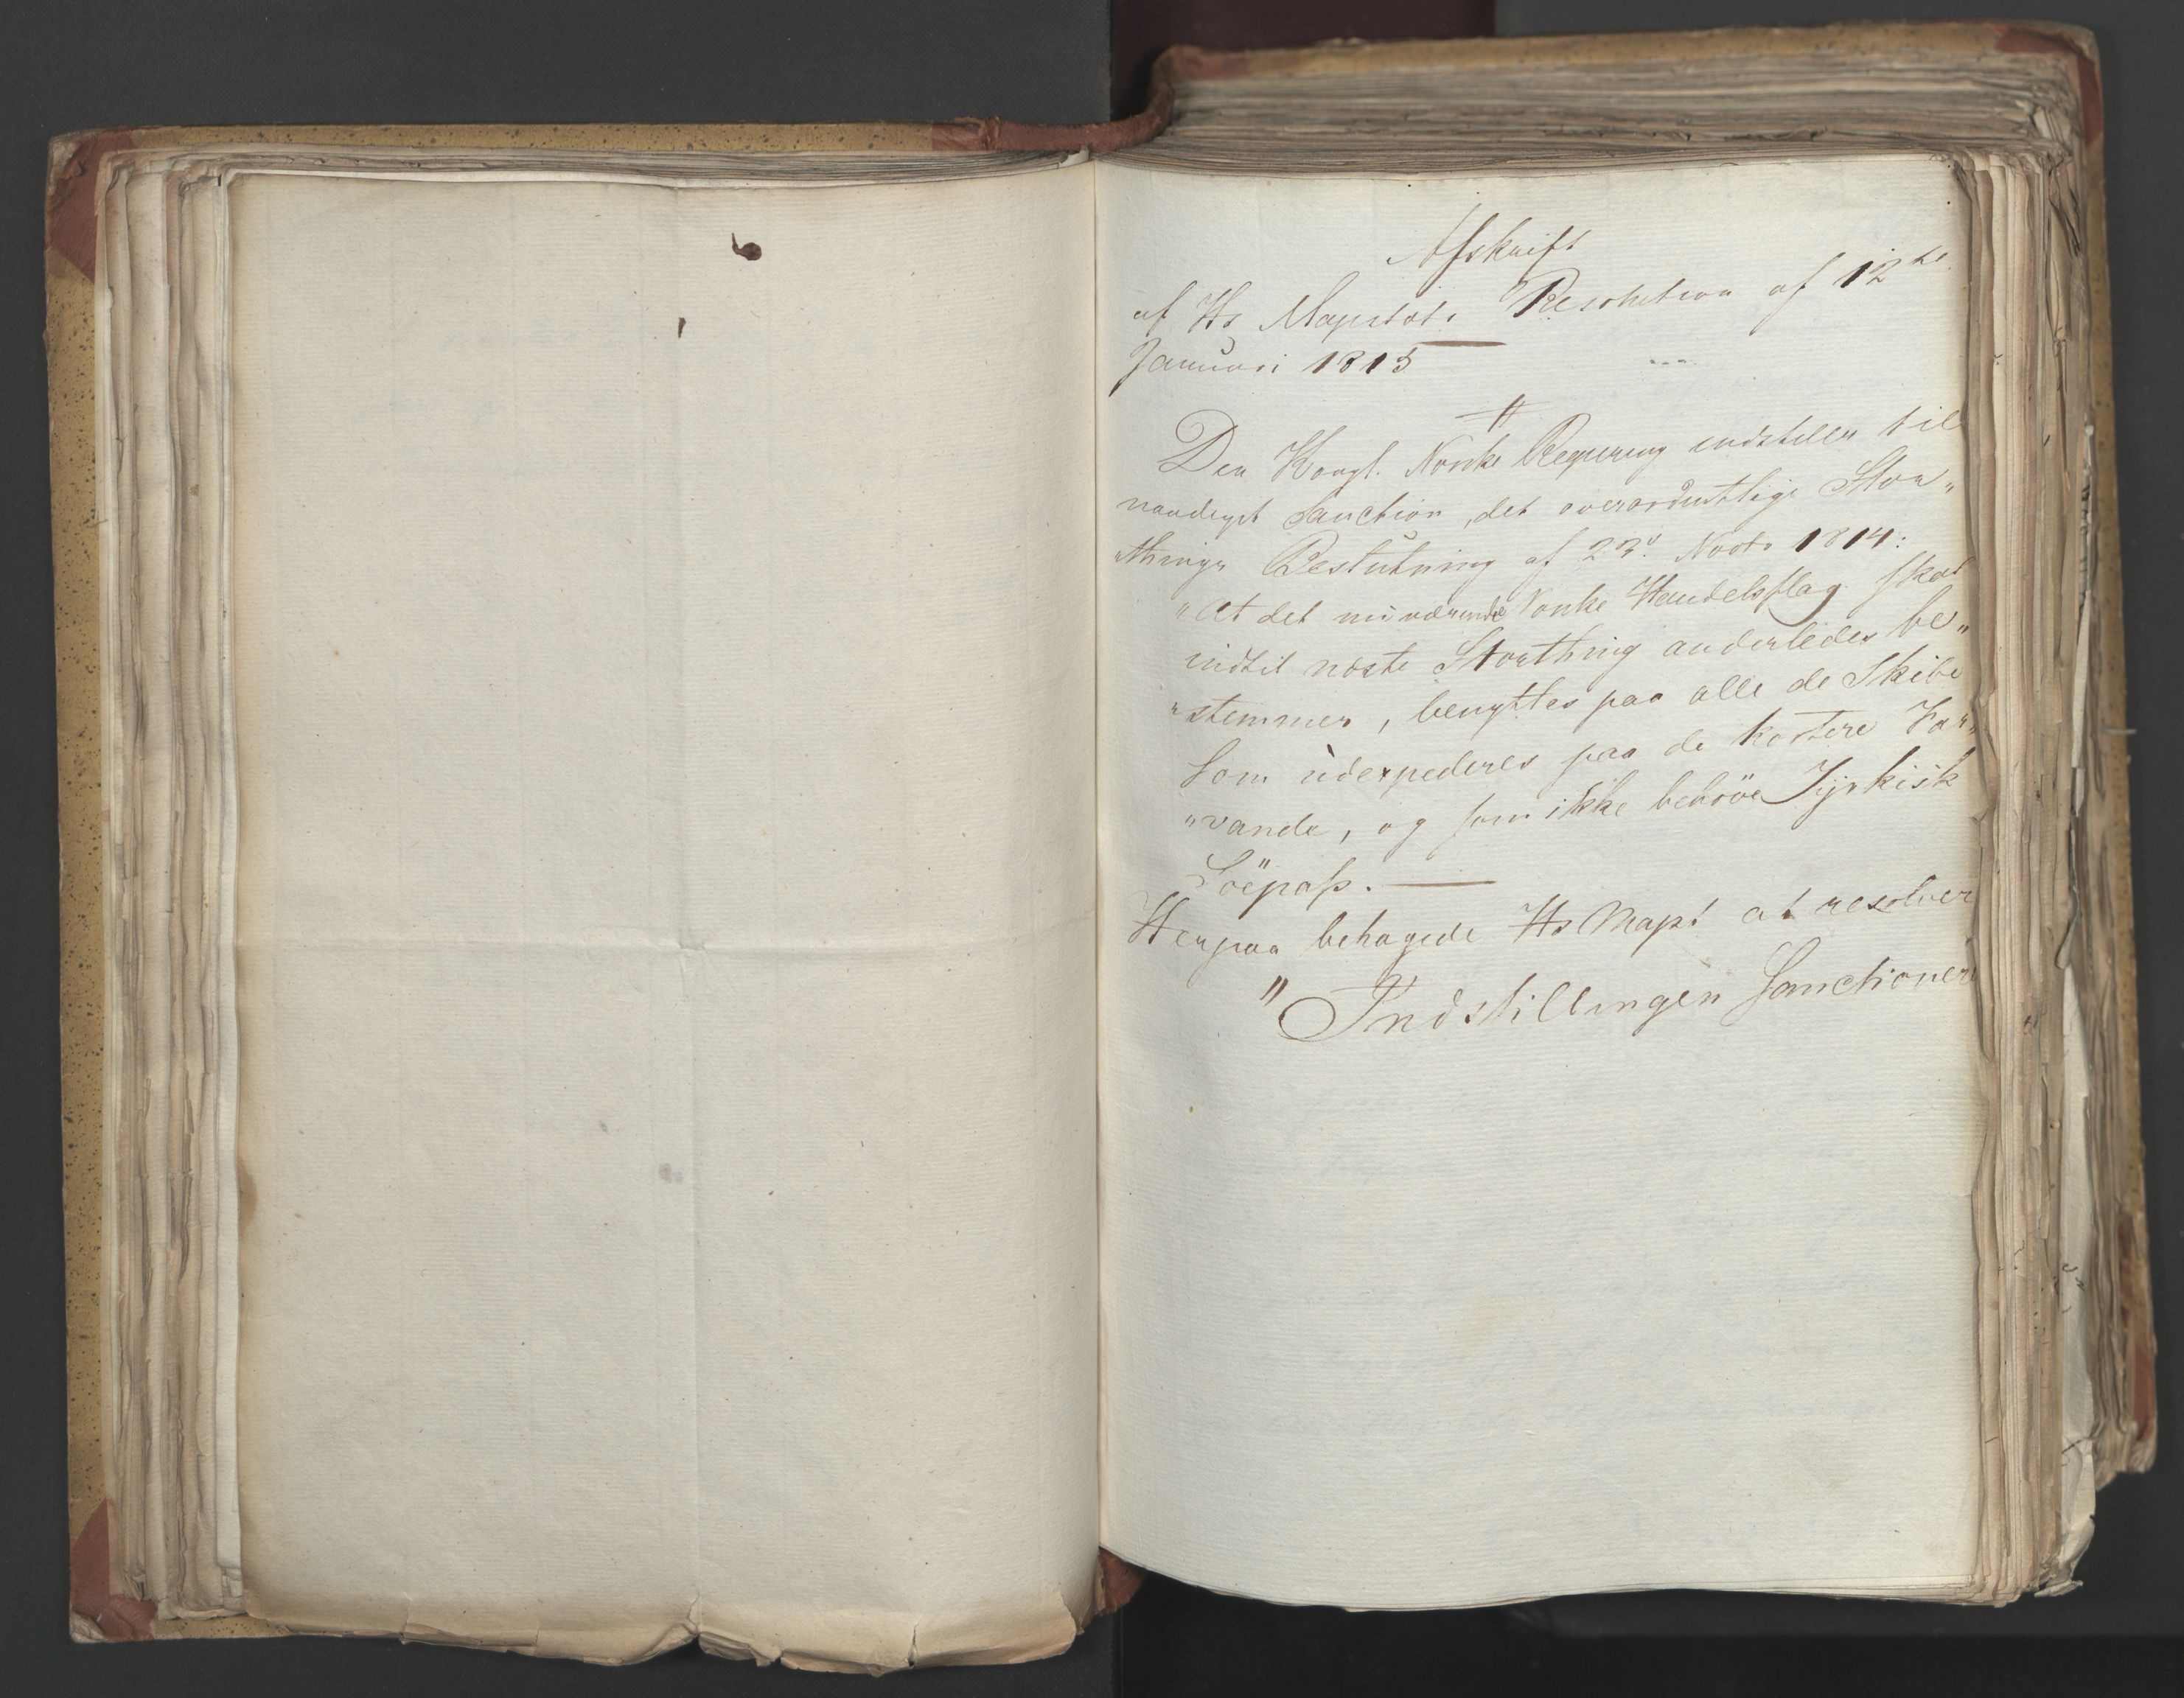 Afskrift
af Hs Majestæts Resolution af 12te
Januari 1815
Den Kongl. Norske Regiering indstiller til
naadigst Sanction, det overordentlige Stor„
„things Beslutning af 23de Novbr 1814:
"At det nùværende Norske Handelsflag skal
indtil næste Storthing anderledes be„
"stemmer, benyttes paa alle de Skibe
som ùdexpederes paa de kortere Far„
"vande, og som ikke behöve Tyrkisk
Söepass. —
Herpaa behagede Hs Majt at resolvere
" Indstillingen Sanctioneres